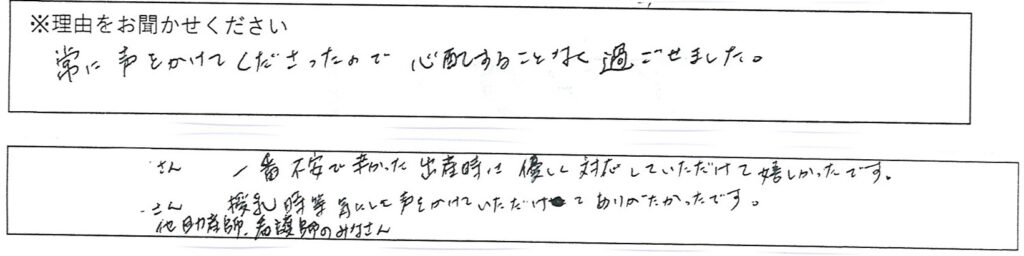 ※理由をお聞かせください
常に声をかけてくださったので心配することなく過ごせました。
さん 一番不安で辛かった出産時に優しく対応していただけて嬉しかったです。
さん 授乳時等気にして声をかけていただけてありがたかったです。
他助産師、看護師のみなさん